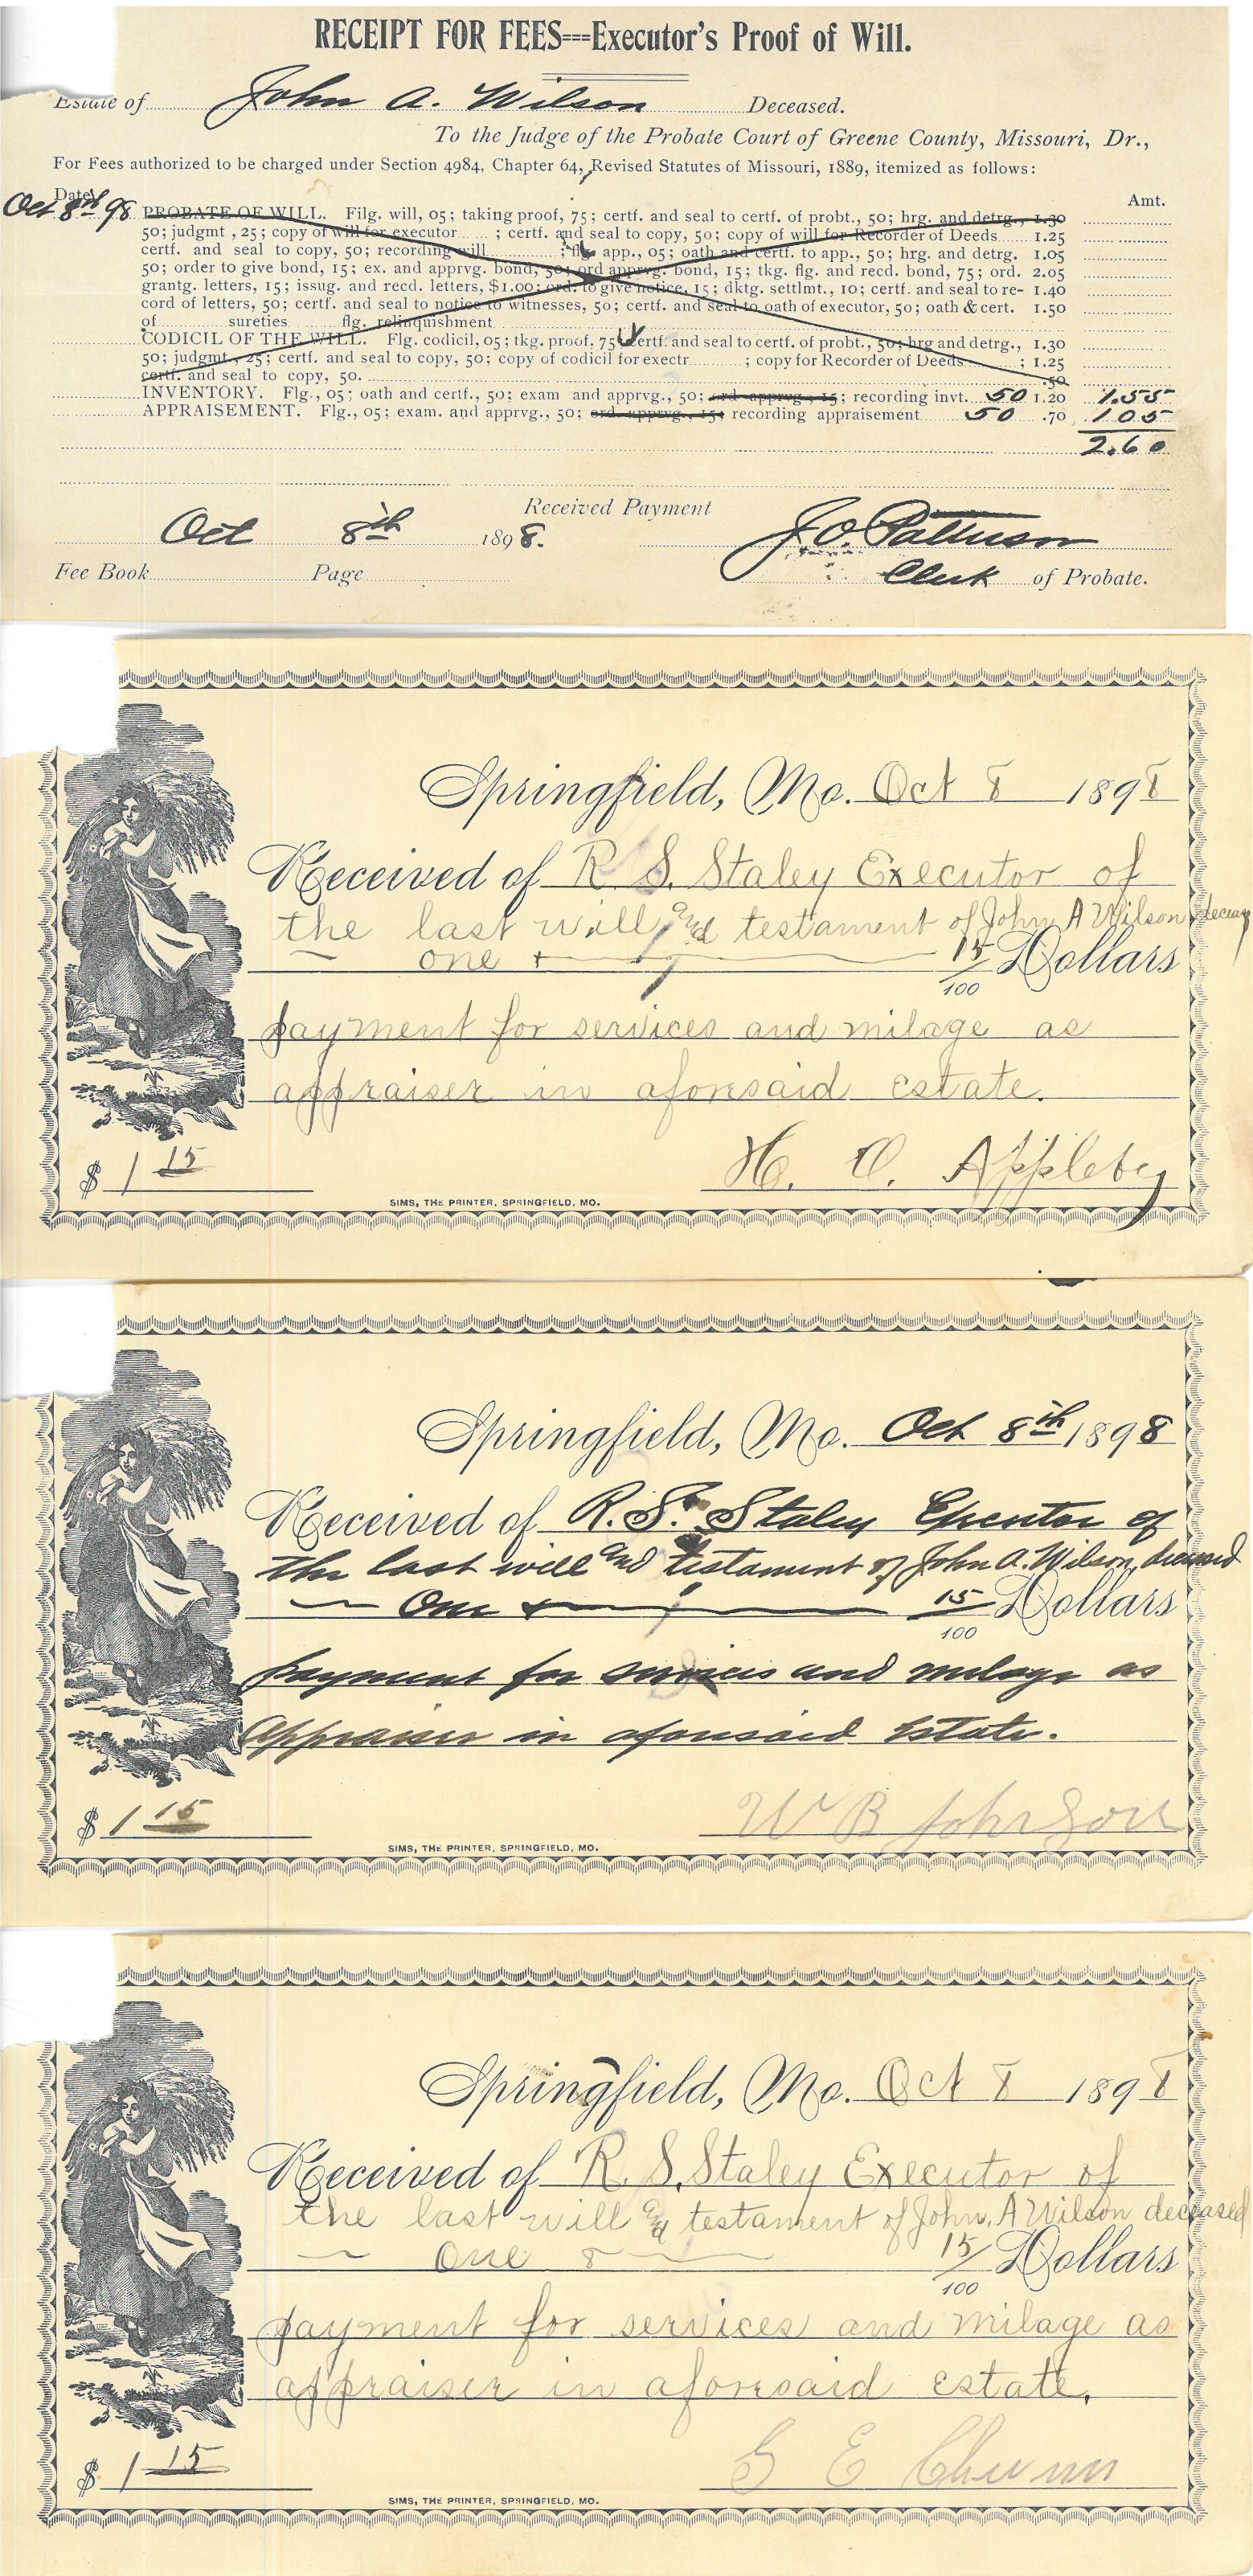 RECEIPT FOR FEES===Executor's Proof of Will.
Estate of John A. Wilson Deceased.
To the Judge of the Probate Court of Greene County, Missouri, Dr.,
For Fees authorized to be charged under Section 4984, Chapter 64, Revised Statutes of Missouri, 1889, itemized as follows:
Date Amt.
Oct 8th 98 PROBATE OF WILL. Filg. will, 05; taking proof, 75; certf. and seal to certf. of probt., 50; hrg. and detrg., 1.30
50; judgmt, 25; copy of will for executor ; certf. and seal to copy, 50; copy of will for Recorder of Deeds 1.25
certf. and seal to copy, 50; recording will ; flg. app., 05; oath and certf. to app., 50; hrg. and detrg. 1.05
50; order to give bond, 15; ex. and apprvg. bond, 50; ord apprvg. bond, 15; tkg. flg. and recd. bond, 75; ord. 2.05
grantg. letters, 15; issug. and recd. letters, $1.00; ord. to give notice, 15; dktg. settlmt., 10; certf. and seal to re- 1.40
cord of letters, 50; certf. and seal to notice to witnesses, 50; certf. and seal to oath of executor, 50; oath & cert. 1.50
of sureties flg. relinquishment
CODICIL OF THE WILL. Flg. codicil, 05; tkg. proof, 75; certf. and seal to certf. of probt., 50; hrg and detrg., 1.30
50; judgmt, 25; certf. and seal to copy, 50; copy of codicil for exectr ; copy for Recorder of Deeds ; 1.25
certf. and seal to copy, 50. .50
INVENTORY. Flg., 05; oath and certf., 50; exam and apprvg., 50; ord. apprvg., 15; recording invt. 50 1.20 1.55
APPRAISEMENT. Flg., 05; exam. and apprvg., 50; ord. apprvg., 15; recording appraisement 50 .70 1 05
2.60
Received Payment
Oct 8th 1898. J. O. Patterson
Fee Book Page Clerk of Probate.
Springfield, Mo. Oct 8 1898
Received of R S. Staley Executor of
the last will and testament of John A Wilson deceas
one + 15/100 Dollars
payment for services and milage as
appraiser in aforesaid estate.
$ 1 15 H. O. Appleby
SIMS, THE PRINTER, SPRINGFIELD, MO.
Springfield, Mo. Oct 8th 1898
Received of R. S. Staley Executor of
the last will and testament of John A. Wilson, deceased
One + 15/100 Dollars
payment for services and milage as
Appraiser in aforesaid Estate.
$ 1 15 W B Johnson
SIMS, THE PRINTER, SPRINGFIELD, MO.
Springfield, Mo. Oct 8 1898
Received of R. S. Staley Executor of
the last will and testament of John, A Wilson deceased
one & 15/100 Dollars
payment for services and milage as
appraiser in aforesaid estate.
$ 1 15 G E Chunn
SIMS, THE PRINTER, SPRINGFIELD, MO.